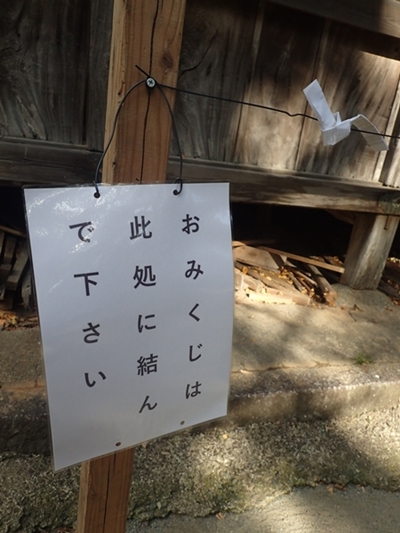 おみくじは
此処に結ん
で下さい